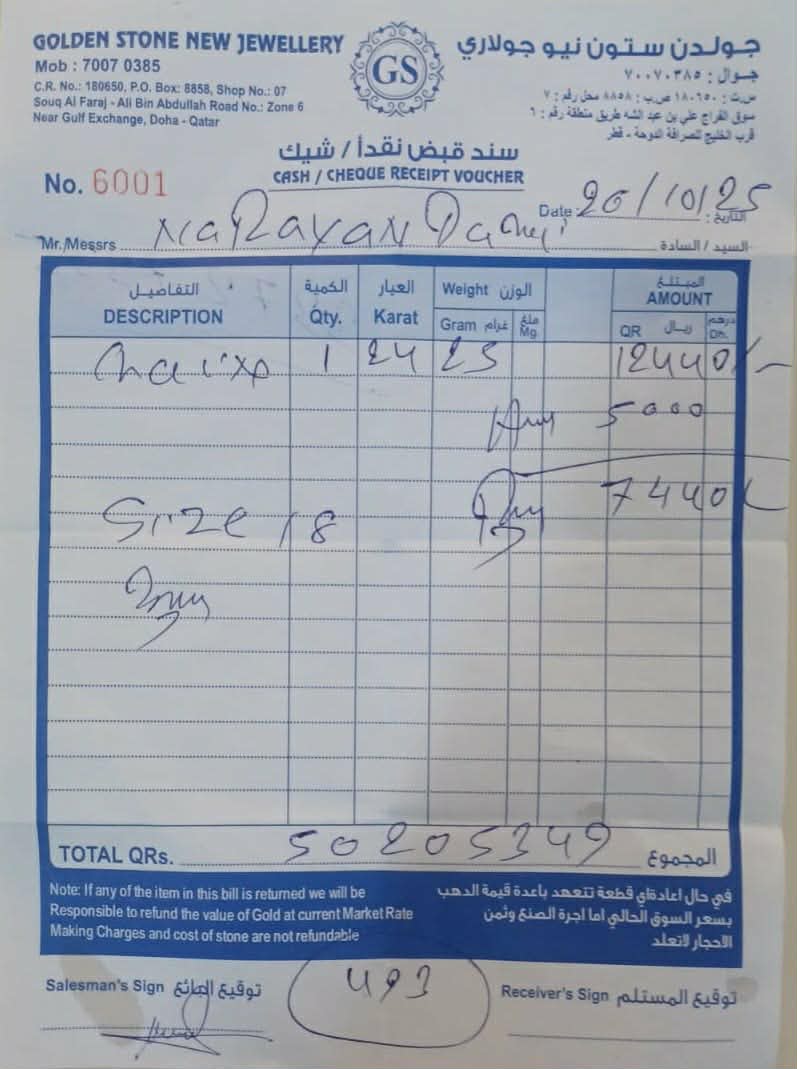 GOLDEN STONE NEW JEWELLERY
Mob : 7007 0385
C.R. No.: 180650, P.O. Box: 8858, Shop No.: 07
Souq Al Faraj - Ali Bin Abdullah Road No.: Zone 6
Near Gulf Exchange, Doha - Qatar
GS
جولدن ستون نيو جولاري
جوال : ٧٠٠٧٠٣٨٥
س.ت : ١٨٠٦٥٠ ص.ب : ٨٨٥٨ محل رقم : ٧
سوق الفراج علي بن عبد الله طريق منطقة رقم : ٦
قرب الخليج للصرافة الدوحة - قطر
سند قبض نقدأ / شيك
CASH / CHEQUE RECEIPT VOUCHER
No. 6001
Date : 20/10/25 التاريخ :
Mr./Messrs NARAYAN السيد / السادة
التفاصيل الكمية العيار Weight الوزن المبلغ
DESCRIPTION Qty. Karat Gram غرام ملغ Mg. AMOUNT QR ريال درهم Dh.
1 24 25 12440/-
5000
7440/-
Size 18
TOTAL QRs. 50205349 المجموع
Note: If any of the item in this bill is returned we will be
Responsible to refund the value of Gold at current Market Rate
Making Charges and cost of stone are not refundable
في حال اعادة اي قطعة نتعهد باعدة قيمة الدهب
بسعر السوق الحالي اما اجرة الصنع وثمن
الاحجار لاتعلد
493
Salesman's Sign توقيع البائع
Receiver's Sign توقيع المستلم